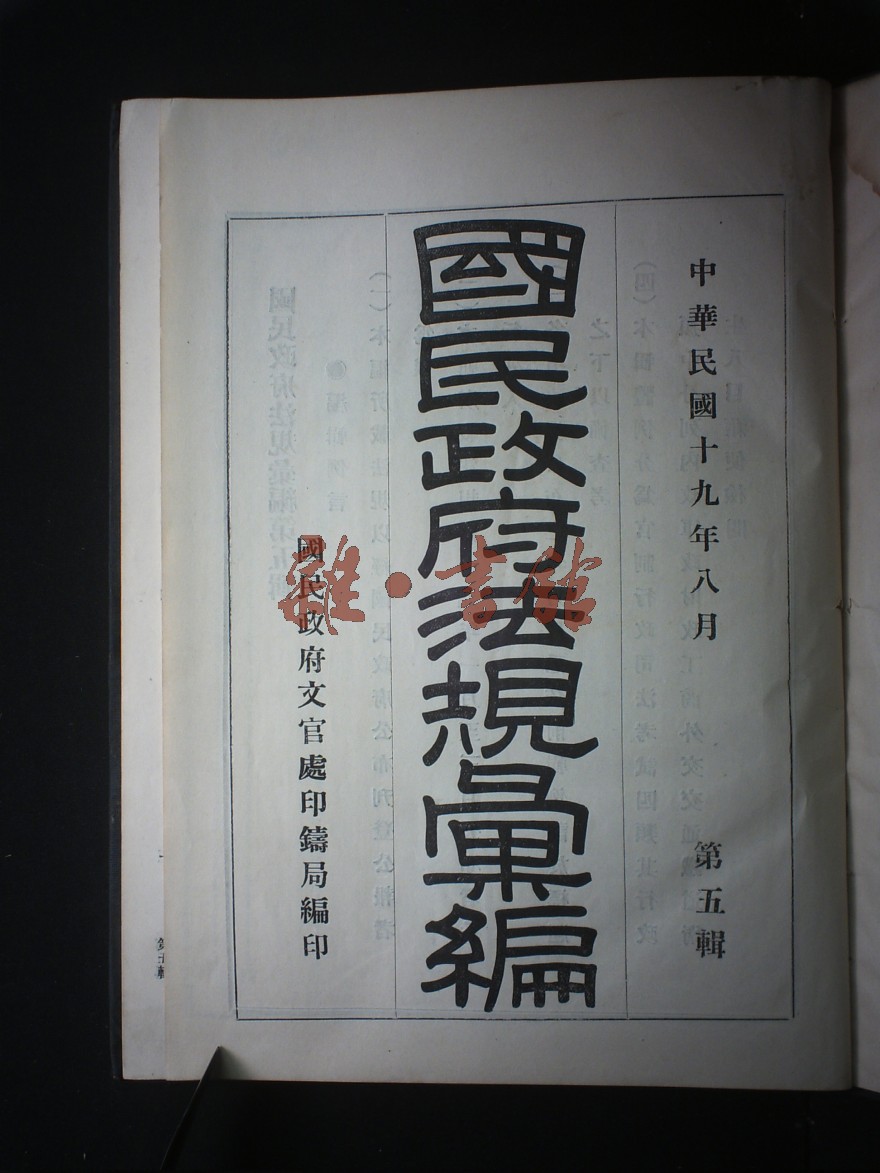 中華民國十九年八月
第五輯
國民政府法規彙編
國民政府文官處印鑄局編印
雜·書館